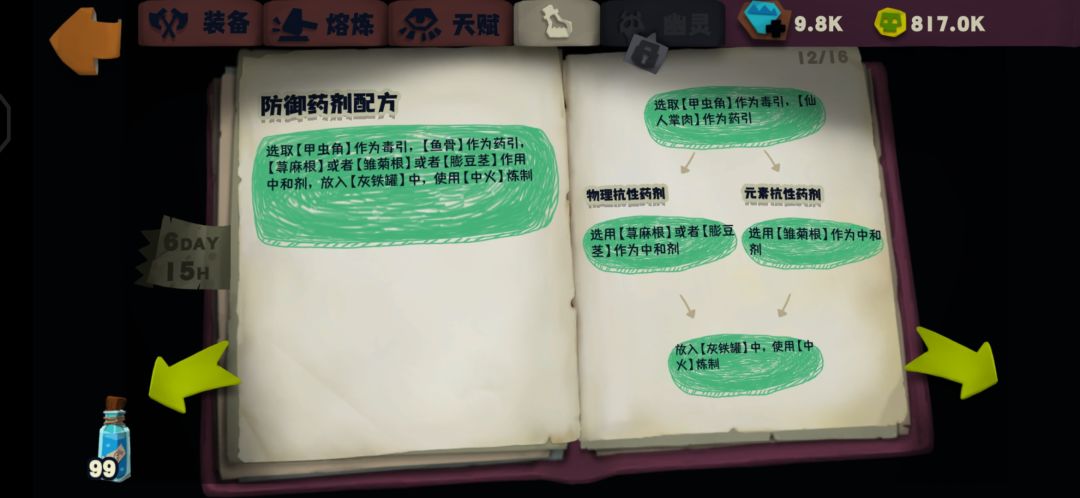 装备
熔炼
天赋
幽灵
9.8K
817.0K
12/16
防御药剂配方
选取【甲虫角】作为毒引，【鱼骨】作为药引，
【荨麻根】或者【雏菊根】或者【膨豆茎】作用
中和剂，放入【灰铁罐】中，使用【中火】炼制
选取【甲虫角】作为毒引，【仙
人掌肉】作为药引
物理抗性药剂
元素抗性药剂
选用【荨麻根】或者【膨豆
茎】作为中和剂
选用【雏菊根】作为中和
剂
放入【灰铁罐】中，使用【中
火】炼制
6DAY
15H
99